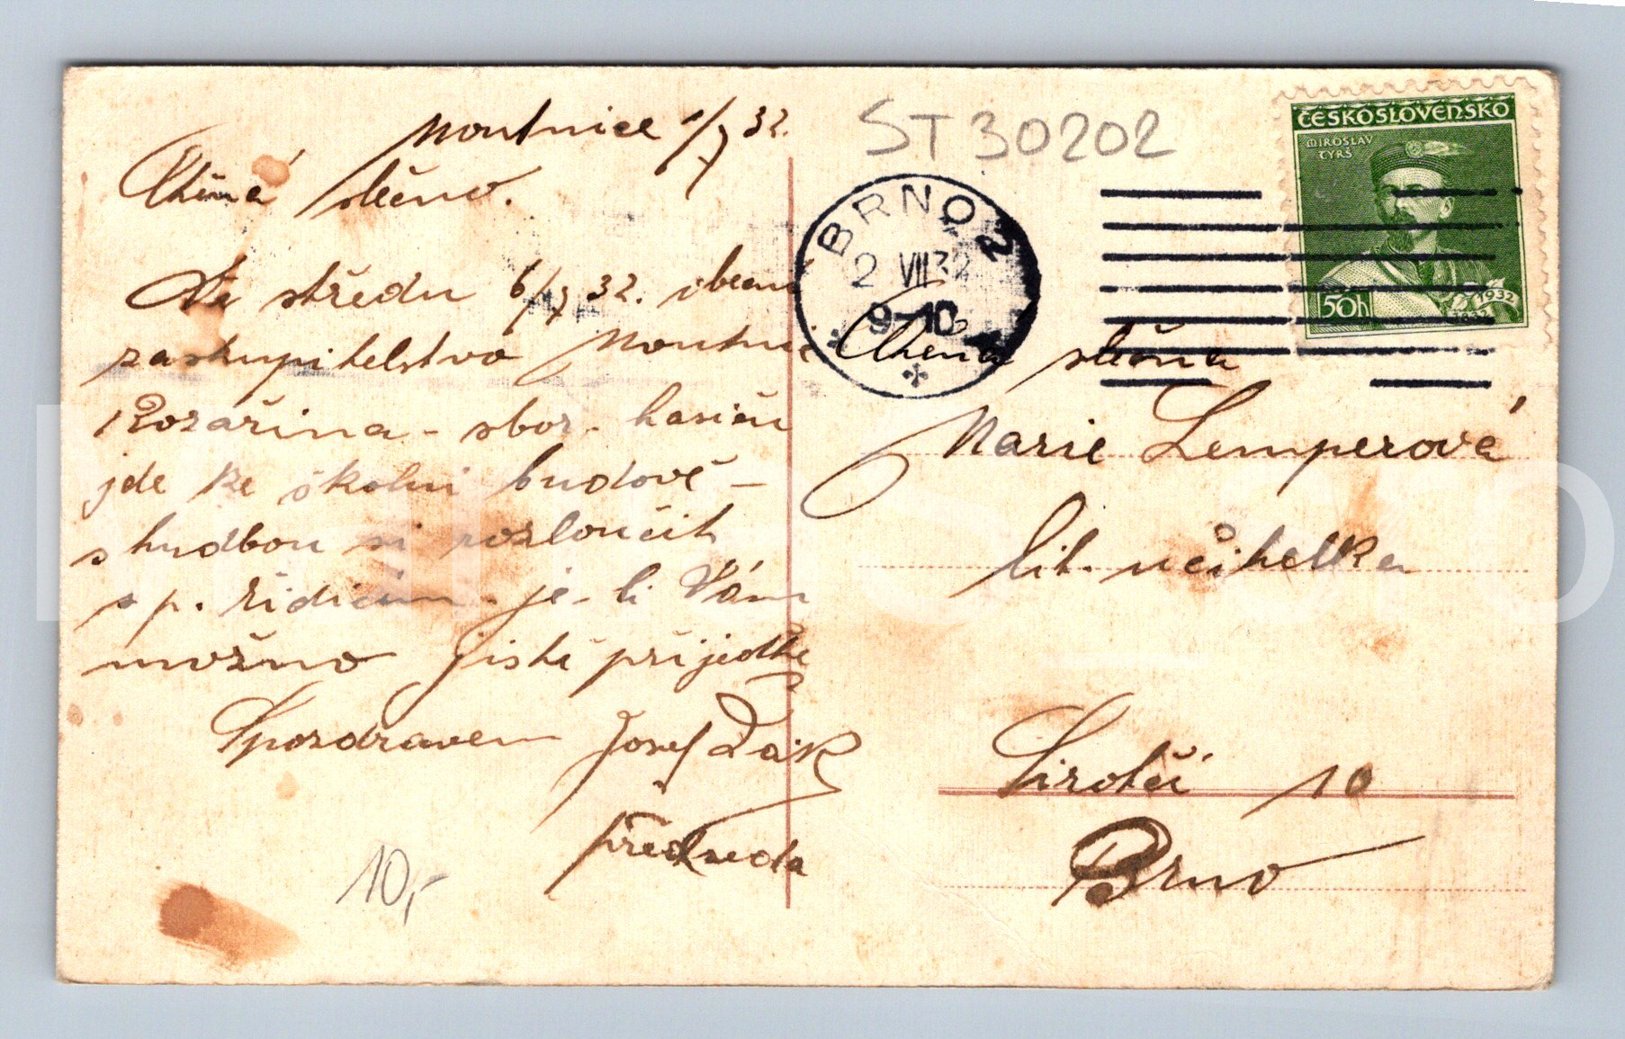 Moutnice 1/7 32.
Ctěná slečno.
Ve středu 6/7 32. obecní
zastupitelstvo Moutnic
Rozařina - sbor. hasičů
jde ke školní budově -
s hudbou si rozloučit
s p. řidícím - je-li Vám
možno jistě přijeďte
S pozdravem Josef Žák
předseda
10,-
ST 30202
BRNO 2
2 VII 32
9-10
ČESKOSLOVENSKO
MIROSLAV
TYRŠ
50h
1932
1832
Ctěná slečna
Marie Lemperová
lit. učitelka
Sirotčí 10
Brno